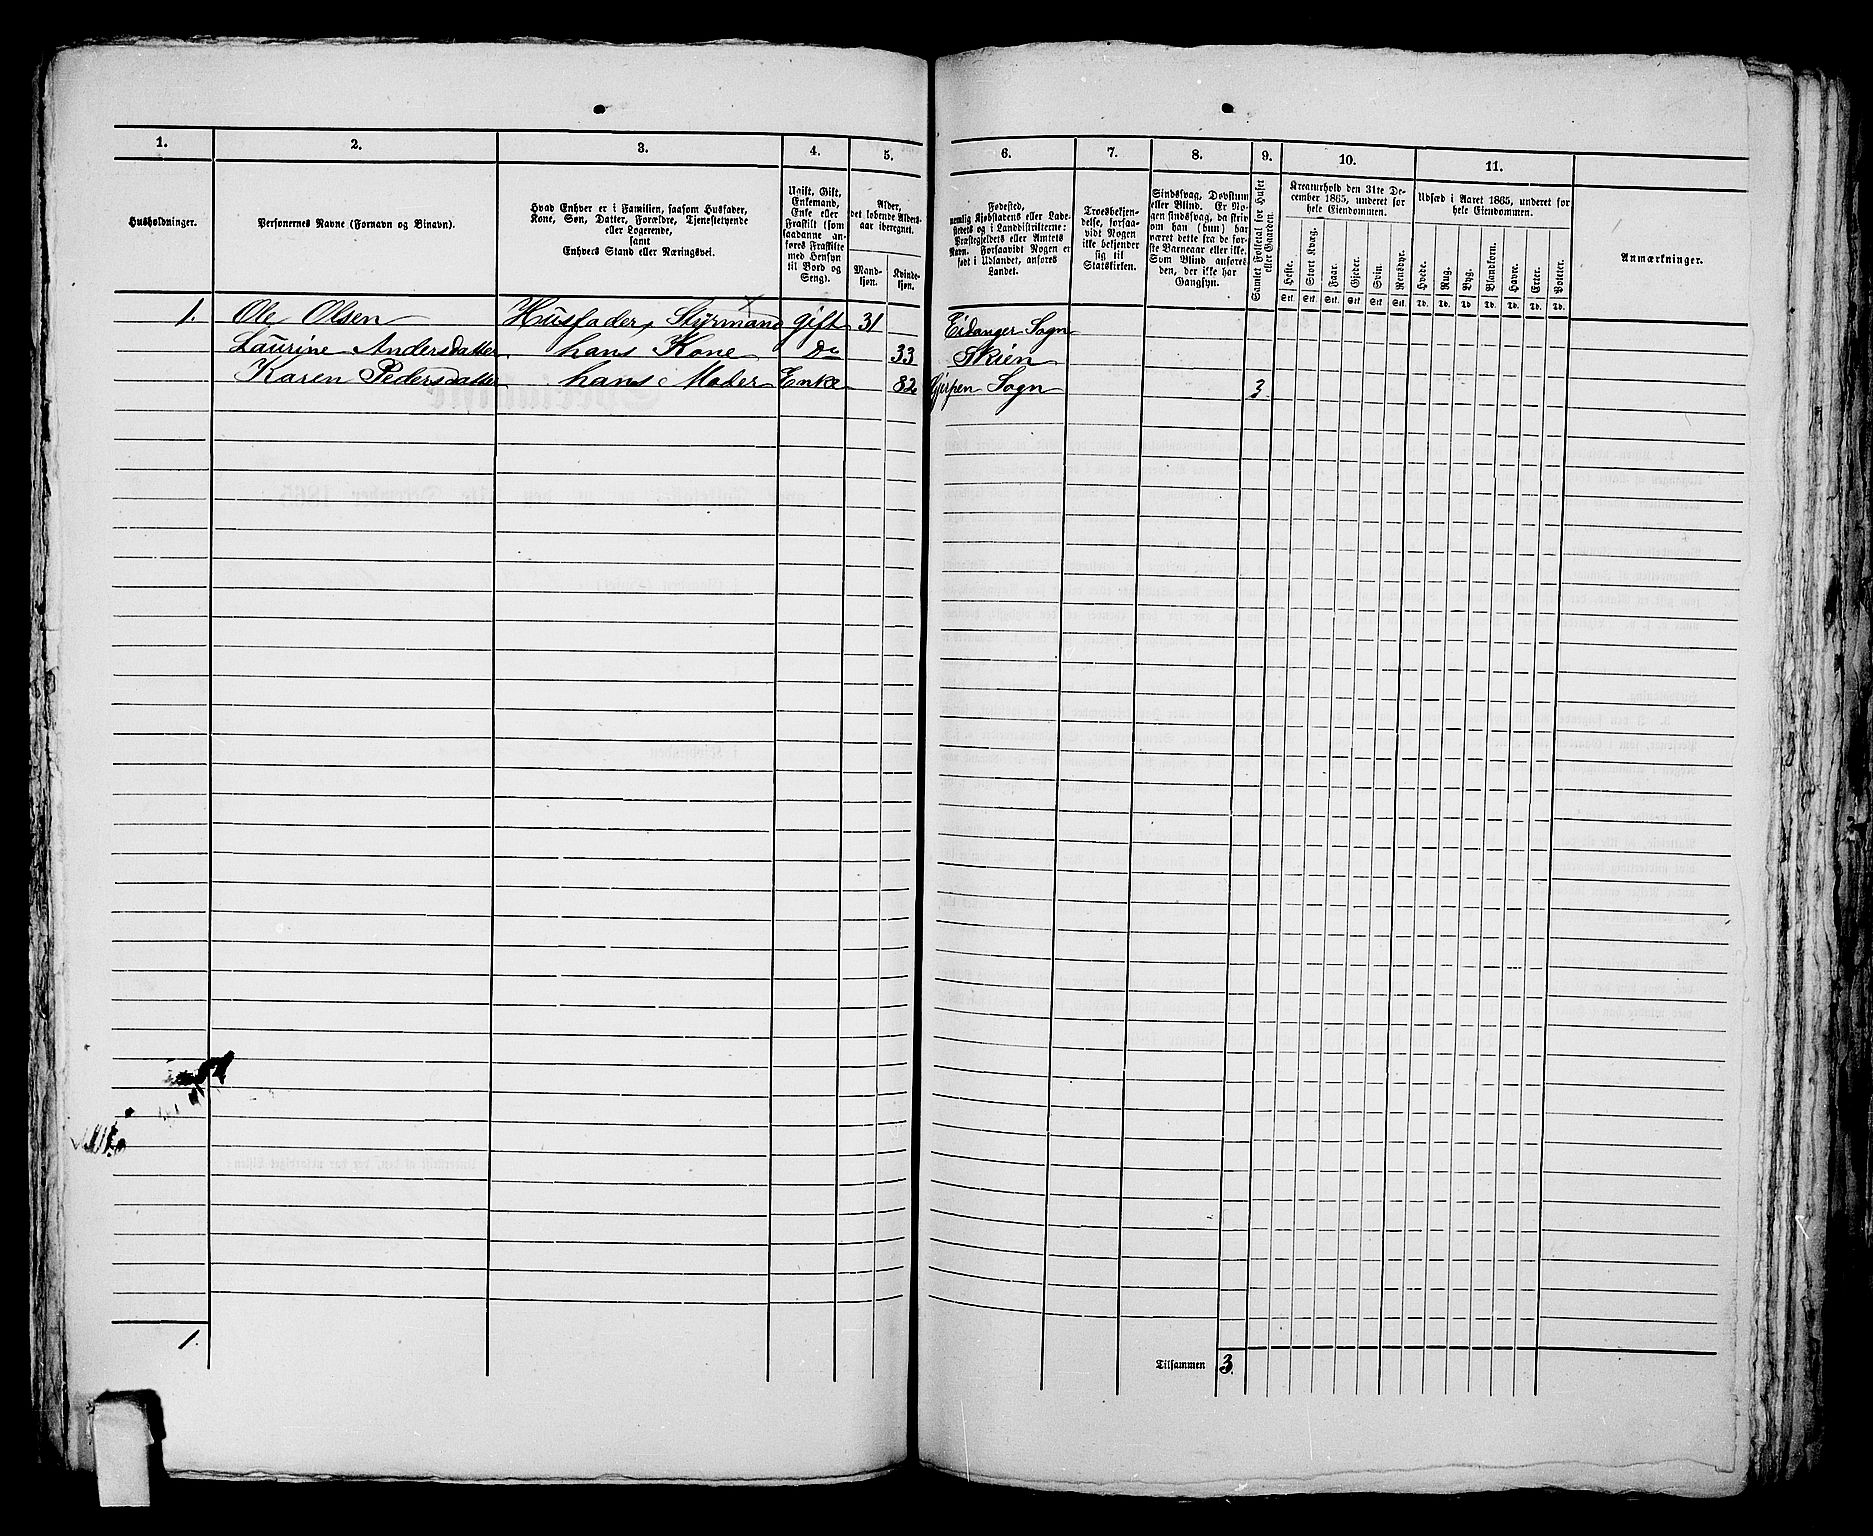 1. 2. 3. 4. 5. 6. 7. 8. 9. 10. 11.
Husholdninger.
Personernes Navne (Fornavn og Binavn).
Hvad Enhver er i Familien, saasom Husfader,
Kone, Søn, Datter, Forældre, Tjenestetyende
eller Logerende,
samt
Enhvers Stand eller Næringsvei.
Ugift, Gift,
Enkemand,
Enke eller
Fraskilt (som
saadanne an-
føres Fraskilte
med Hensyn
til Bord og
Seng).
Alder,
det løbende Alders-
aar iberegnet.
Mand-
kjøn.
Kvinde-
kjøn.
Fødested,
nemlig Kjøbstadens eller Lade-
stedets og i Landdistrikterne:
Præstegjeldets eller Amtets
Navn. Forsaavidt Nogen er
født i Udlandet, anføres
Landet.
Troesbekjen-
delse, forsaa-
vidt Nogen
ikke bekjender
sig til
Statskirken.
Sindssvag, Døvstum
eller Blind. Er No-
gen sindssvag, da skriv
om han (hun) har
været dette fra de før-
ste Barneaar eller ikke.
Som Blind anføres
den, der ikke har
Gangsyn.
Samlet Folketal for Huset
eller Gaarden.
Kreaturhold den 31te De-
cember 1865, underet for
hele Eiendommen.
Heste. Stort Kvæg. Faar. Gjeder. Svin. Rensdyr.
Stk. Stk. Stk. Stk. Stk. Stk.
Udsæd i Aaret 1865, underet for
hele Eiendommen.
Hvede. Rug. Byg. Blandkorn. Havre. Erter. Poteter.
Td. Td. Td. Td. Td. Td. Td.
Anmærkninger.
1. Ole Olsen Husfader, Styrmand gift 31 Eidanger Sogn
Laurine Andersdatter hans Kone Do 33 Skien
Karen Pedersdatter hans Moder Enke 82 Gjerpen Sogn 3
1.
Tilsammen 3.